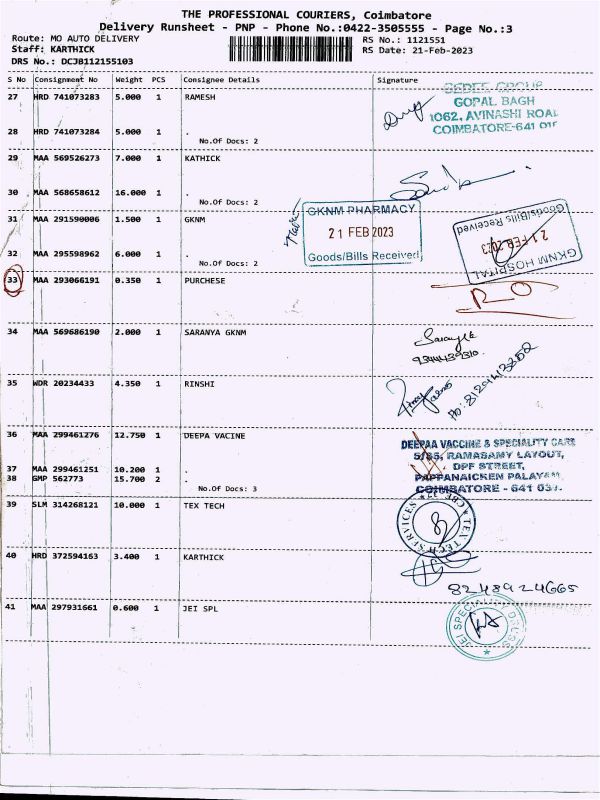 THE PROFESSIONAL COURIERS, Coimbatore
Delivery Runsheet - PNP - Phone No.:0422-3505555 - Page No.:3
Route: MO AUTO DELIVERY
RS No.: 1121551
Staff: KARTHICK
RS Date: 21-Feb-2023
DRS No.: DCJB112155103
S No Consignment No Weight PCS Consignee Details Signature
27 HRD 741073283 5.000 1 RAMESH
GEDEE GROUP
GOPAL BAGH
1062, AVINASHI ROAD
COIMBATORE-641 018
28 HRD 741073284 5.000 1 .
No.Of Docs: 2
29 MAA 569526273 7.000 1 KATHICK
30 MAA 568658612 16.000 1 .
No.Of Docs: 2
31 MAA 291590006 1.500 1 GKNM
GKNM PHARMACY
21 FEB 2023
Goods/Bills Received
GKNM HOSPITAL
21 FEB 2023
Goods/Bills Received
32 MAA 295598962 6.000 1 .
No.Of Docs: 2
33 MAA 293066191 0.350 1 PURCHESE
RO
34 MAA 569686190 2.000 1 SARANYA GKNM
35 WDR 20234433 4.350 1 RINSHI
36 MAA 299461276 12.750 1 DEEPA VACINE
DEEPAA VACCINE & SPECIALITY CARE
5/85, RAMASAMY LAYOUT,
DPF STREET,
PAPPANAICKEN PALAYAM
COIMBATORE - 641 037.
37 MAA 299461251 10.200 1 .
38 GMP 562773 15.700 2 .
No.Of Docs: 3
39 SLM 314268121 10.000 1 TEX TECH
TEX TECH SERVICES
40 HRD 372594163 3.400 1 KARTHICK
8248924665
41 MAA 297931661 0.600 1 JEI SPL
JEI SPECIALITY DRUGS